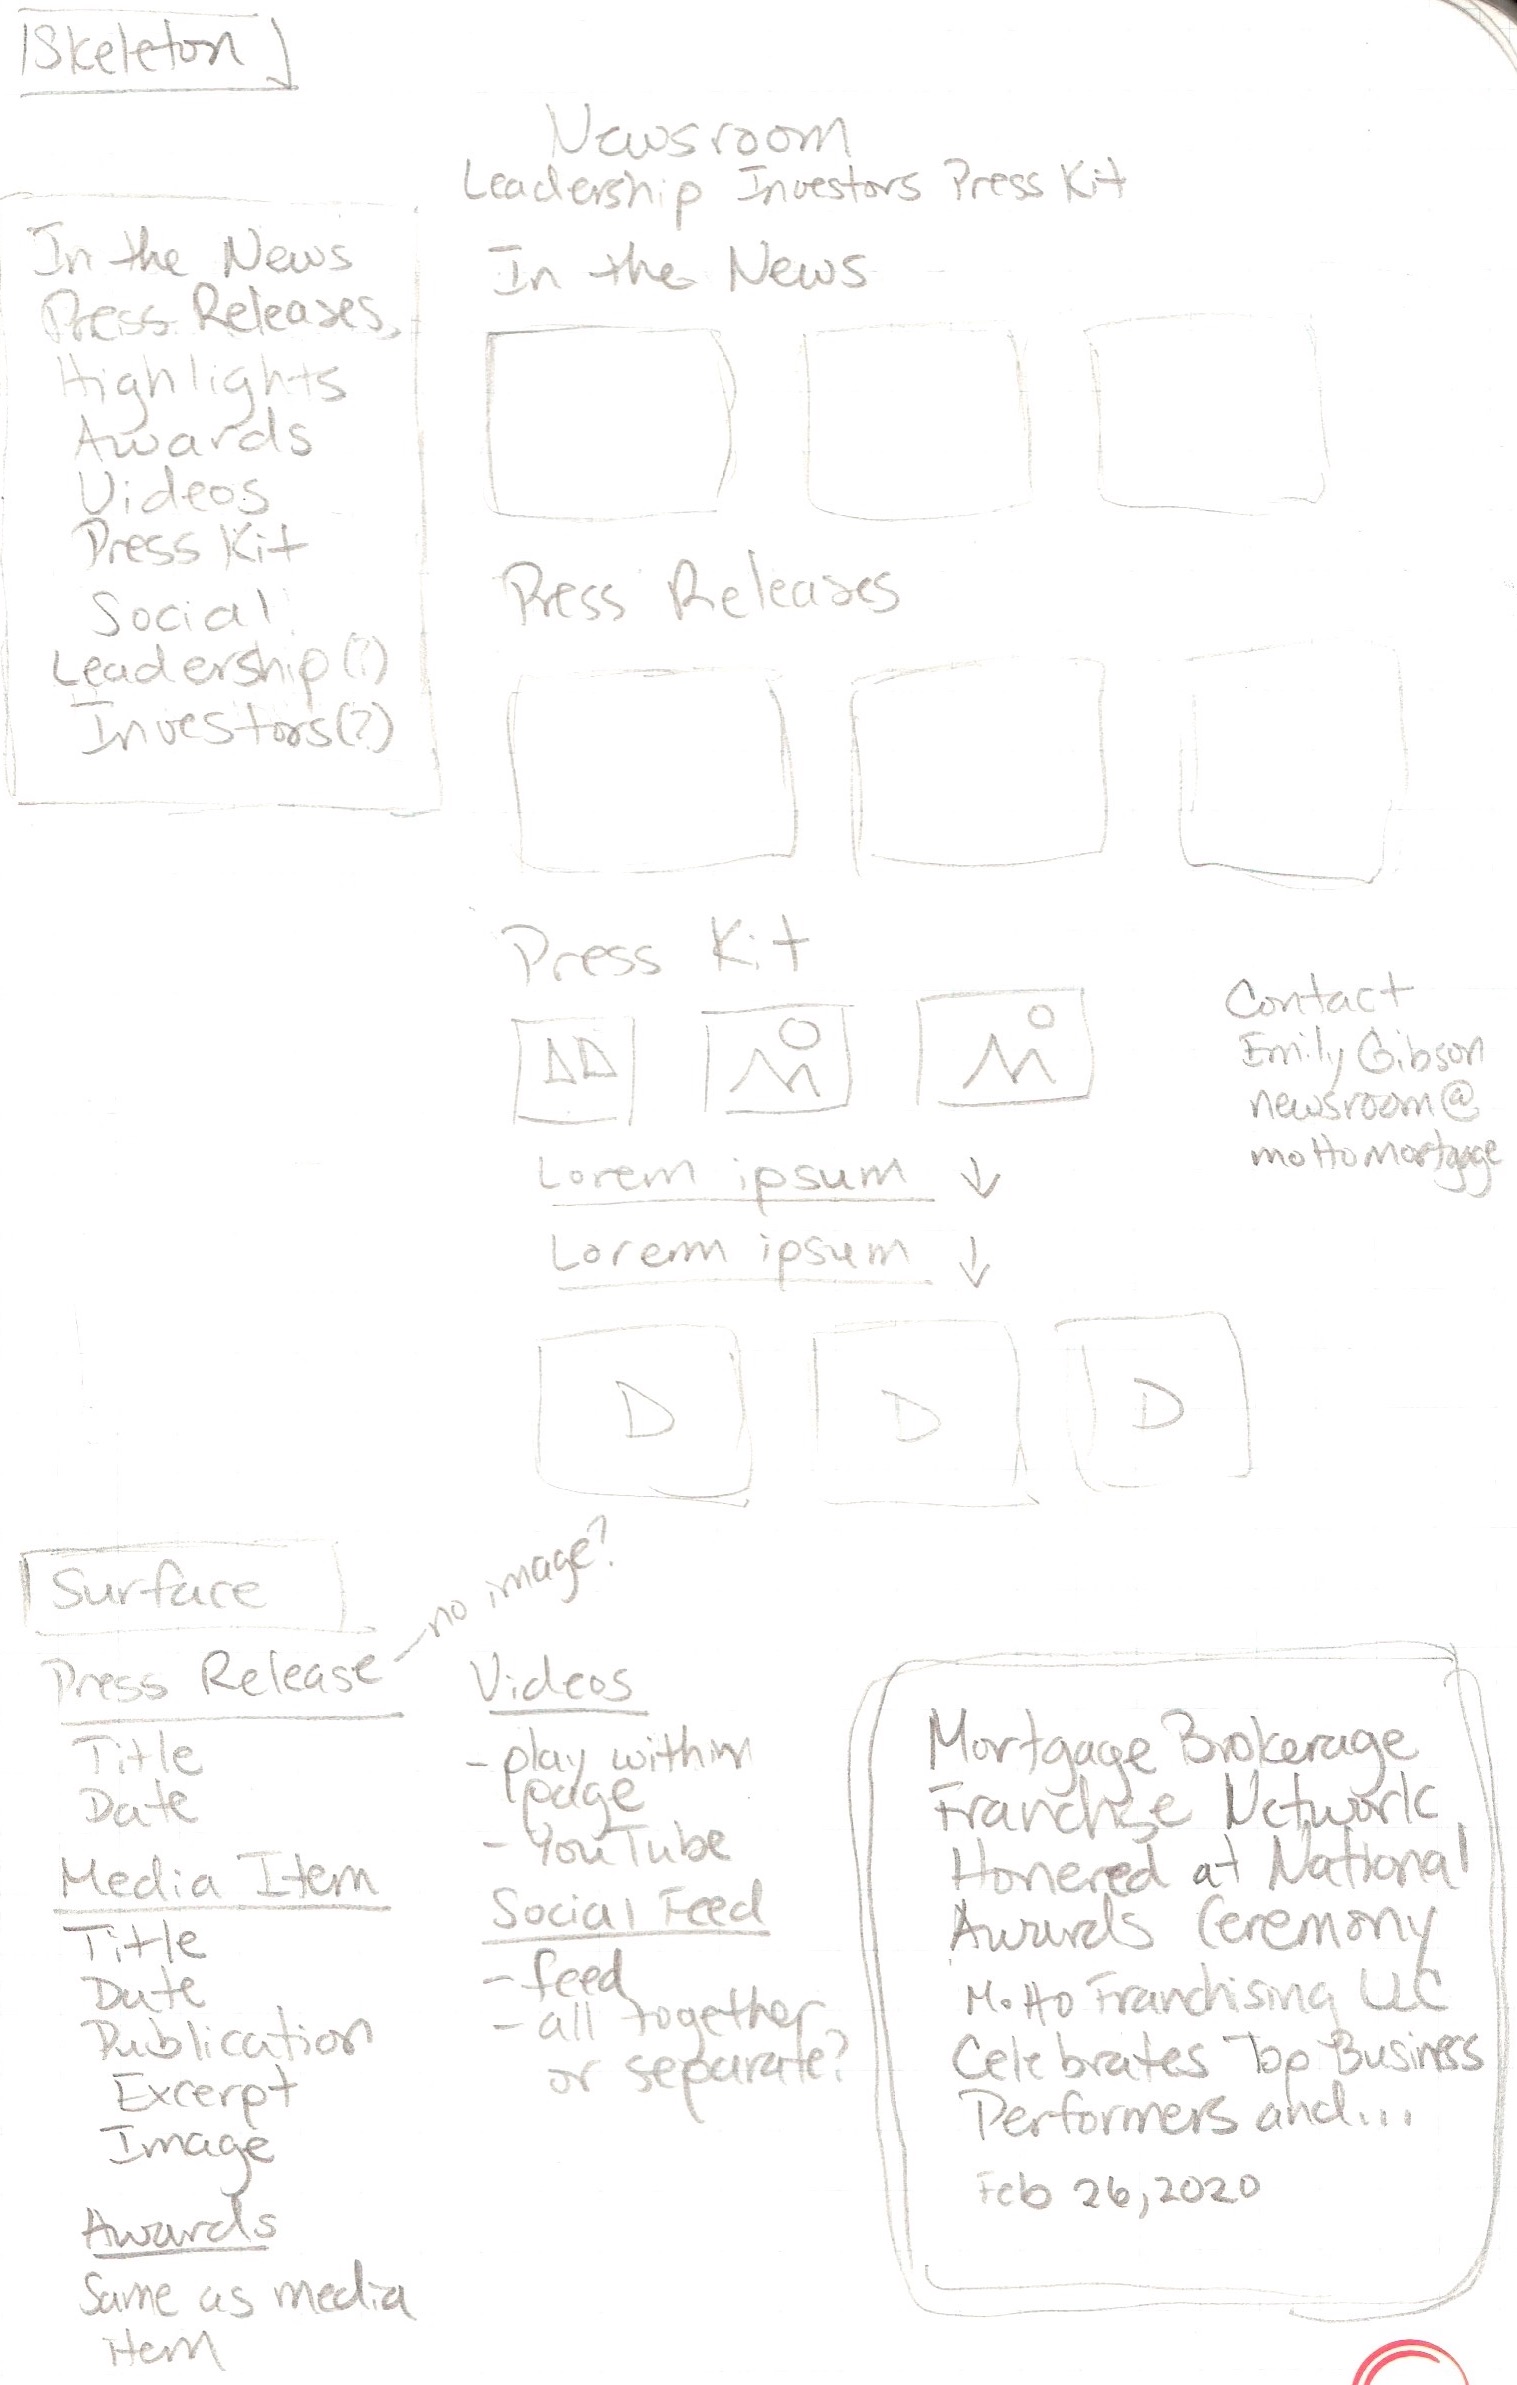 Skeleton
Newsroom
Leadership Investors Press Kit
In the News
Press Releases
Highlights
Awards
Videos
Press Kit
Social
Leadership(?)
Investors(?)
In the News
Press Releases
Press Kit
Contact
Emily Gibson
newsroom@
mottomortgage
Lorem ipsum ↓
Lorem ipsum ↓
Surface
Press Release – no image?
Title
Date
Media Item
Title
Date
Publication
Excerpt
Image
Awards
Same as media
item
Videos
- play within
page
- YouTube
Social Feed
- feed
- all together
or separate?
Mortgage Brokerage
Franchise Network
Honered at National
Awards Ceremony
Motto Franchising LLC
Celebrates Top Business
Performers and...
Feb 26, 2020